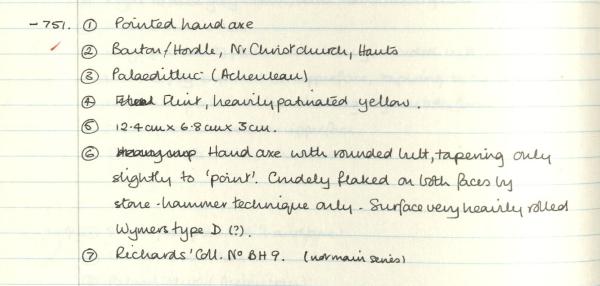 -751. ① Pointed hand axe
② Barton/Hordle, Nr Christchurch, Hants
③ Palaeolithic (Acheulean)
④ Flint, heavily patinated yellow.
⑤ 12.4cm x 6.8cm x 3cm.
⑥ Hand axe with rounded butt, tapering only
slightly to 'point'. Crudely flaked on both faces by
stone-hammer technique only - Surface very heavily rolled
Wymers type D (?).
⑦ Richards' Coll. No BH9. (not main series)